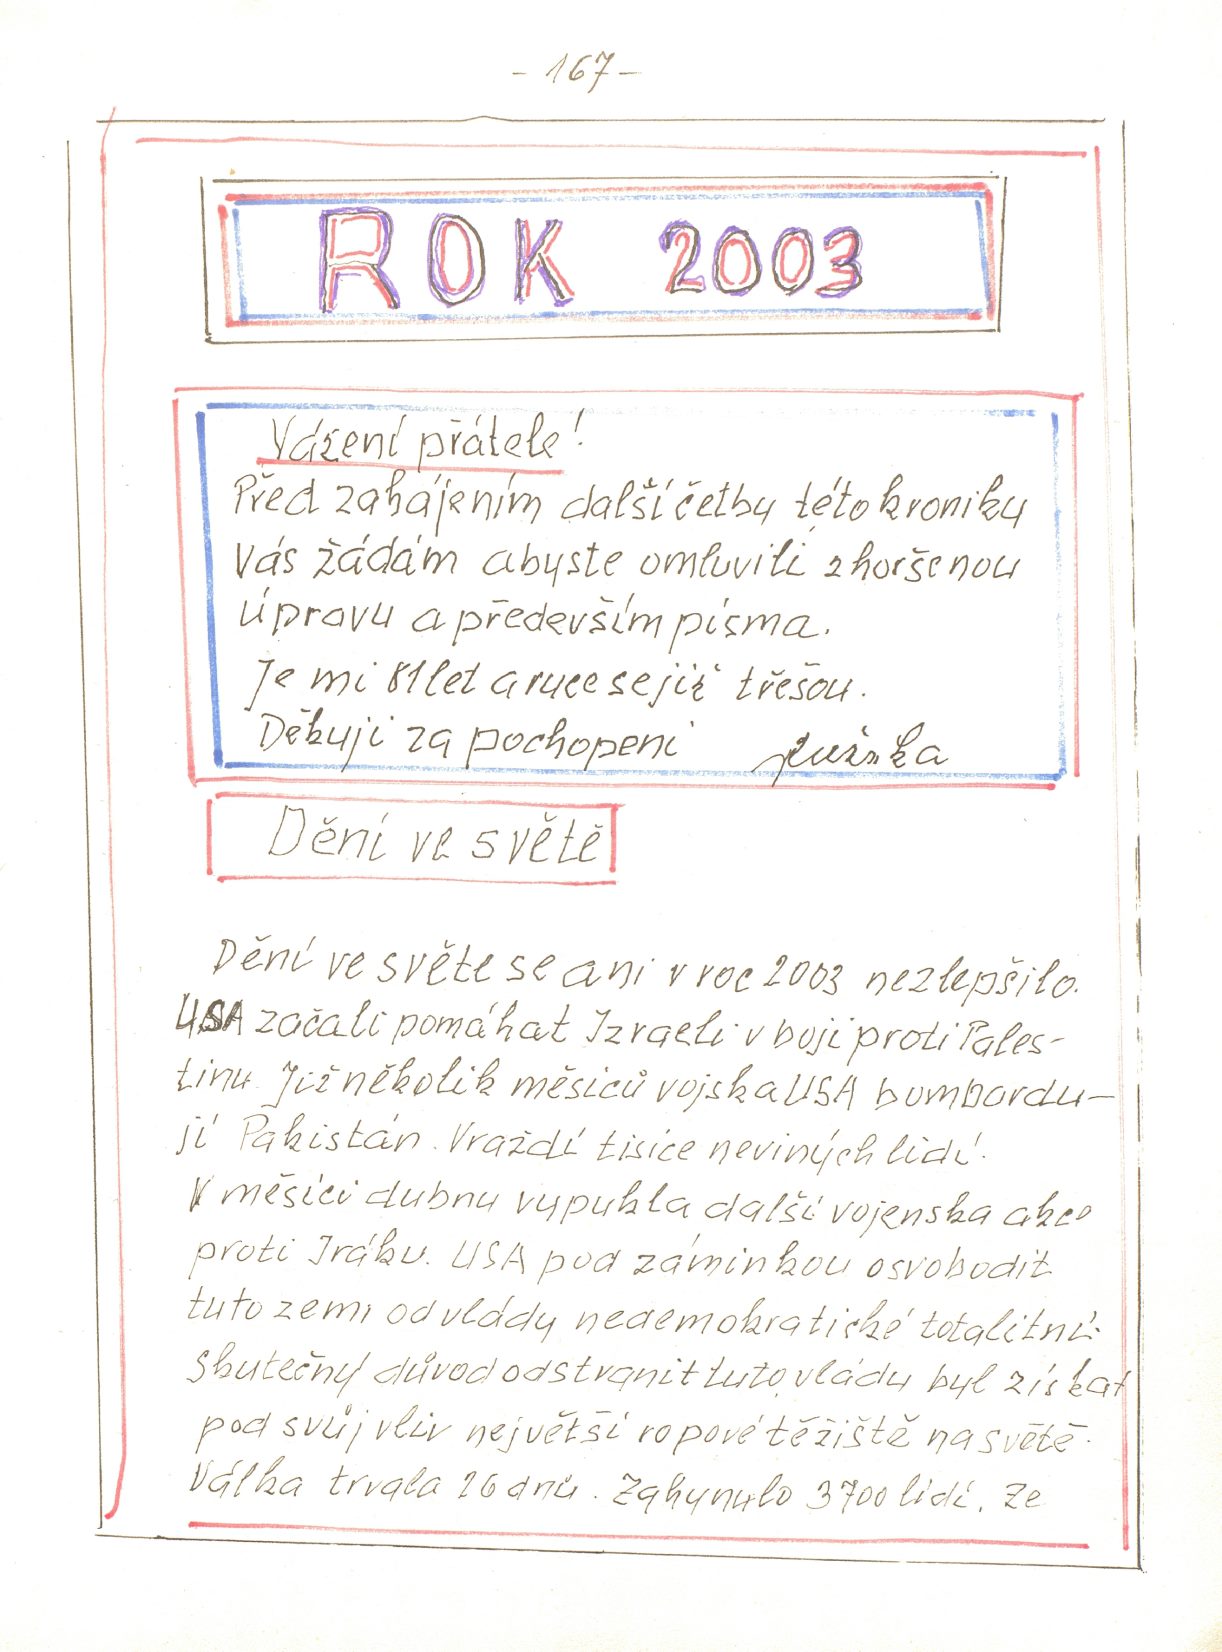 - 167 -
ROK 2003
Vážení přátelé!
Před zahájením další četby této kroniky
Vás žádám abyste omluvili zhoršenou
úpravu a především písma.
Je mi 81 let a ruce se již třešou.
Děkuji za pochopení
Dění ve světě
Dění ve světe se ani v roc 2003 nezlepšilo.
USA začali pomáhat Izraeli v boji proti Pales-
tinu. Již několik měsíců vojska USA bombardu-
jí Pakistán. Vraždí tisíce neviných lidí.
V měsíci dubnu vypukla další vojenska akce
proti Iráku. USA pod záminkou osvobodit
tuto zemi od vlády nedemokratické totalitní.
Skutečný důvod odstranit tuto vládu byl získat
pod svůj vliv největší ropové těžiště na světě.
Válka trvala 26 dnů. Zahynulo 3700 lidí. Ze